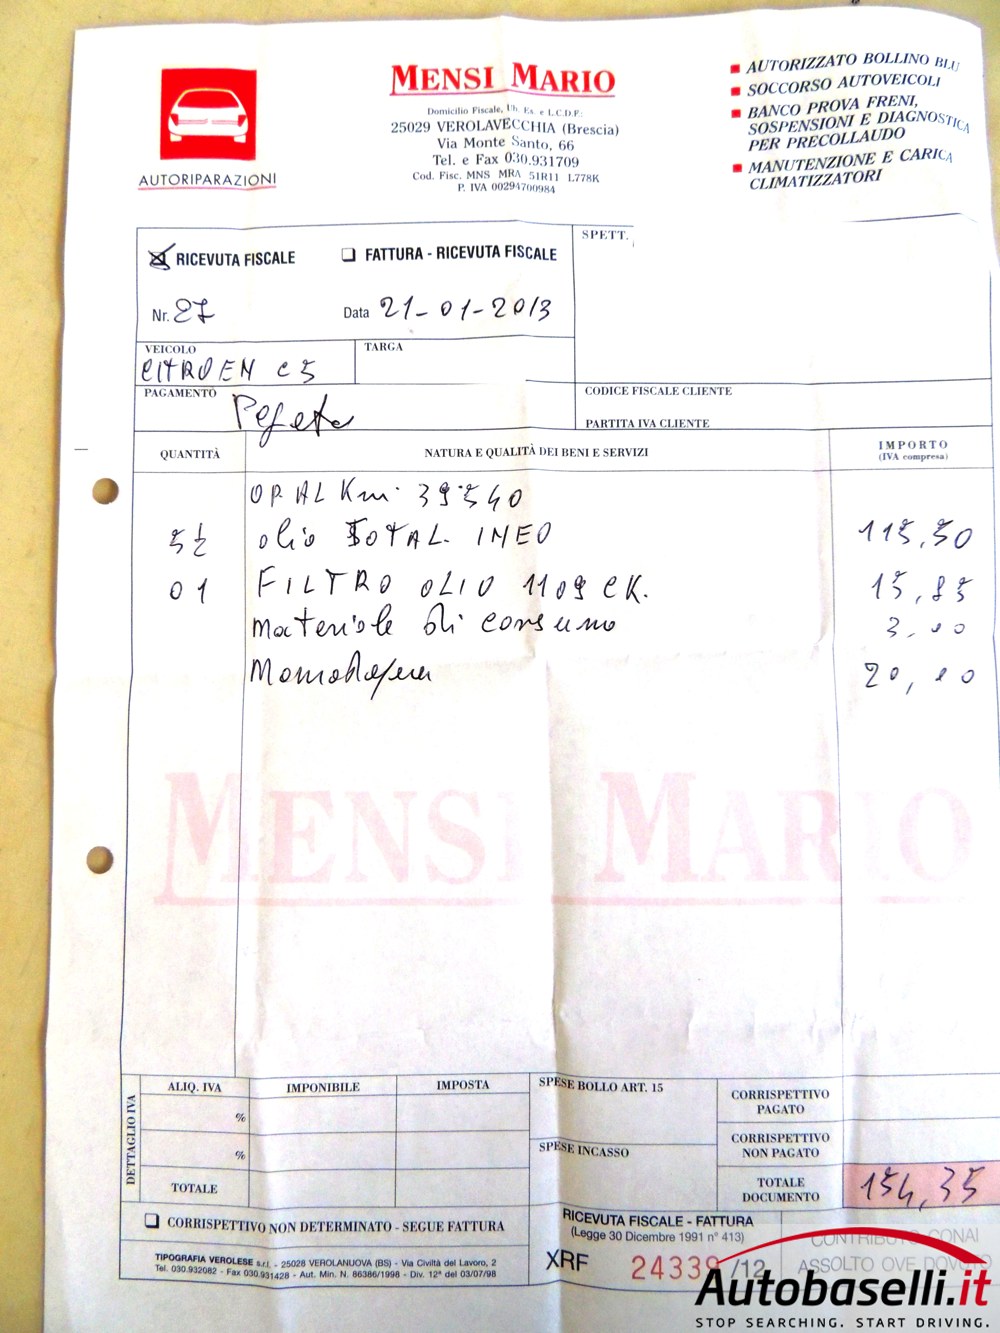 MENSI MARIO
Domicilio Fiscale, Ub. Es. e L.C.D.F.:
25029 VEROLAVECCHIA (Brescia)
Via Monte Santo, 66
Tel. e Fax 030.931709
Cod. Fisc. MNS MRA 51R11 L778K
P. IVA 00294700984
AUTORIPARAZIONI
AUTORIZZATO BOLLINO BLU
SOCCORSO AUTOVEICOLI
BANCO PROVA FRENI,
SOSPENSIONI E DIAGNOSTICA
PER PRECOLLAUDO
MANUTENZIONE E CARICA
CLIMATIZZATORI
RICEVUTA FISCALE
FATTURA - RICEVUTA FISCALE
SPETT.
Nr. 27 Data 21-01-2013
VEICOLO CITROEN C5
TARGA
PAGAMENTO
CODICE FISCALE CLIENTE
PARTITA IVA CLIENTE
QUANTITÀ NATURA E QUALITÀ DEI BENI E SERVIZI IMPORTO
(IVA compresa)
OP. AL Km. 39540
5 1/2 olio TOTAL INEO 115,50
01 FILTRO OLIO 1109 CK. 15,85
Materiale di consumo 3,00
Manodopera 20,00
MENSI MARIO
DETTAGLIO IVA
ALIQ. IVA IMPONIBILE IMPOSTA
%
%
TOTALE
SPESE BOLLO ART. 15
SPESE INCASSO
CORRISPETTIVO
PAGATO
CORRISPETTIVO
NON PAGATO
TOTALE
DOCUMENTO 154,35
CORRISPETTIVO NON DETERMINATO - SEGUE FATTURA
RICEVUTA FISCALE - FATTURA
(Legge 30 Dicembre 1991 n° 413)
XRF 24339/12
CONTRIBUTO CONAI
ASSOLTO OVE DOVUTO
TIPOGRAFIA VEROLESE s.r.l. - 25028 VEROLANUOVA (BS) - Via Civiltà del Lavoro, 2
Tel. 030.932082 - Fax 030.931428 - Aut. Min. N. 86386/1998 - Div. 12ª del 03/07/98
Autobaselli.it
STOP SEARCHING. START DRIVING.